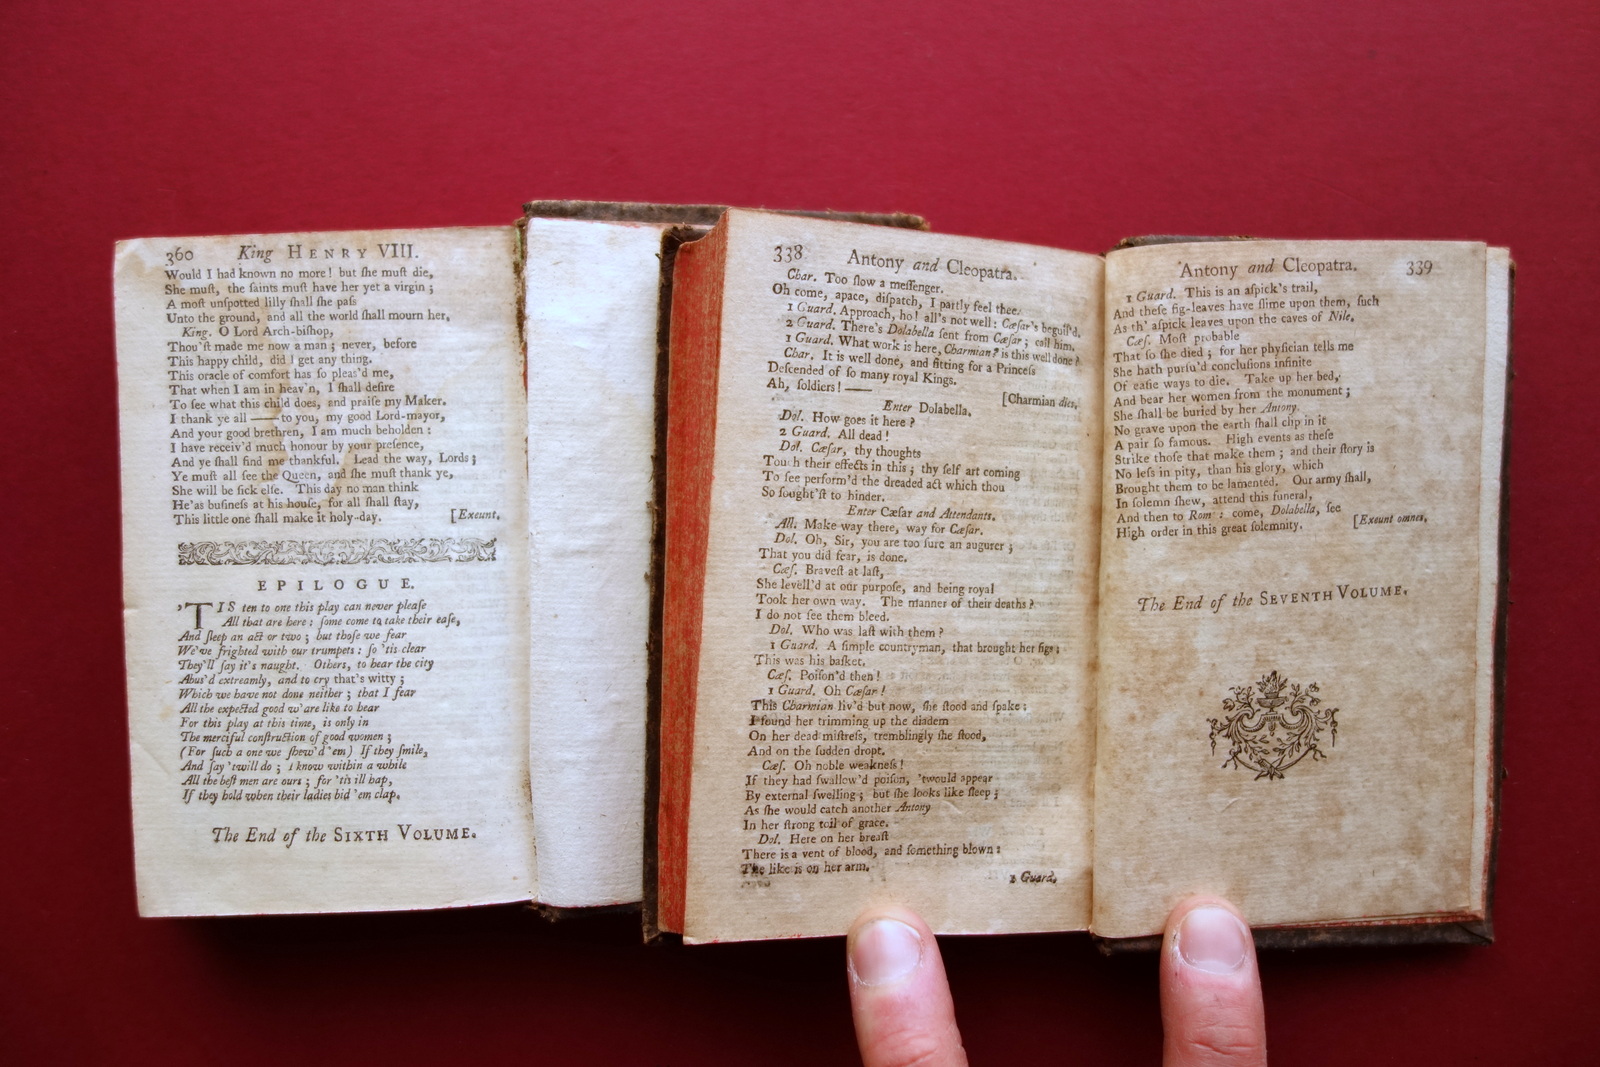 360 King HENRY VIII.
Would I had known no more! but ſhe muſt die,
She muſt, the ſaints muſt have her yet a virgin;
A moſt unſpotted lilly ſhall ſhe paſs
Unto the ground, and all the world ſhall mourn her,
King. O Lord Arch-biſhop,
Thou'ſt made me now a man; never, before
This happy child, did I get any thing.
This oracle of comfort has ſo pleas'd me,
That when I am in heav'n, I ſhall deſire
To ſee what this child does, and praiſe my Maker.
I thank ye all —— to you, my good Lord-mayor,
And your good brethren, I am much beholden:
I have receiv'd much honour by your preſence,
And ye ſhall find me thankful. Lead the way, Lords;
Ye muſt all ſee the Queen, and ſhe muſt thank ye,
She will be ſick elſe. This day no man think
He'as buſineſs at his houſe, for all ſhall ſtay,
This little one ſhall make it holy-day. [Exeunt.
EPILOGUE.
'TIS ten to one this play can never pleaſe
All that are here: ſome come to take their eaſe,
And ſleep an act or two; but thoſe we fear
We've frighted with our trumpets: ſo 'tis clear
They'll ſay it's naught. Others, to hear the city
Abus'd extreamly, and to cry that's witty;
Which we have not done neither; that I fear
All the expected good w'are like to hear
For this play at this time, is only in
The merciful conſtruction of good women;
(For ſuch a one we ſhew'd 'em) If they ſmile,
And ſay 'twill do; I know within a while
All the beſt men are ours; for 'tis ill hap,
If they hold when their ladies bid 'em clap.
The End of the SIXTH VOLUME.
338 Antony and Cleopatra.
Char. Too ſlow a meſſenger.
Oh come, apace, diſpatch, I partly feel thee.
1 Guard. Approach, ho! all's not well: Cæſar's beguil'd.
2 Guard. There's Dolabella ſent from Cæſar; call him.
1 Guard. What work is here, Charmian? is this well done?
Char. It is well done, and fitting for a Princeſs
Deſcended of ſo many royal Kings.
Ah, ſoldiers! —— [Charmian dies.
Enter Dolabella.
Dol. How goes it here?
2 Guard. All dead!
Dol. Cæſar, thy thoughts
Touch their effects in this; thy ſelf art coming
To ſee perform'd the dreaded act which thou
So ſought'ſt to hinder.
Enter Cæſar and Attendants.
All. Make way there, way for Cæſar.
Dol. Oh, Sir, you are too ſure an augurer;
That you did fear, is done.
Cæſ. Braveſt at laſt,
She levell'd at our purpoſe, and being royal
Took her own way. The manner of their deaths?
I do not ſee them bleed.
Dol. Who was laſt with them?
1 Guard. A ſimple countryman, that brought her figs:
This was his baſket.
Cæſ. Poiſon'd then!
1 Guard. Oh Cæſar!
This Charmian liv'd but now, ſhe ſtood and ſpake:
I found her trimming up the diadem
On her dead miſtreſs, tremblingly ſhe ſtood,
And on the ſudden dropt.
Cæſ. Oh noble weakneſs!
If they had ſwallow'd poiſon, 'twould appear
By external ſwelling; but ſhe looks like ſleep;
As ſhe would catch another Antony
In her ſtrong toil of grace.
Dol. Here on her breaſt
There is a vent of blood, and ſomething blown:
The like is on her arm.
1 Guard.
Antony and Cleopatra. 339
1 Guard. This is an aſpick's trail,
And theſe fig-leaves have ſlime upon them, ſuch
As th' aſpick leaves upon the caves of Nile.
Cæſ. Moſt probable
That ſo ſhe died; for her phyſician tells me
She hath purſu'd concluſions infinite
Of eaſie ways to die. Take up her bed,
And bear her women from the monument;
She ſhall be buried by her Antony.
No grave upon the earth ſhall clip in it
A pair ſo famous. High events as theſe
Strike thoſe that make them; and their ſtory is
No leſs in pity, than his glory, which
Brought them to be lamented. Our army ſhall,
In ſolemn ſhew, attend this funeral,
And then to Rome: come, Dolabella, ſee
High order in this great ſolemnity. [Exeunt omnes.
The End of the SEVENTH VOLUME.